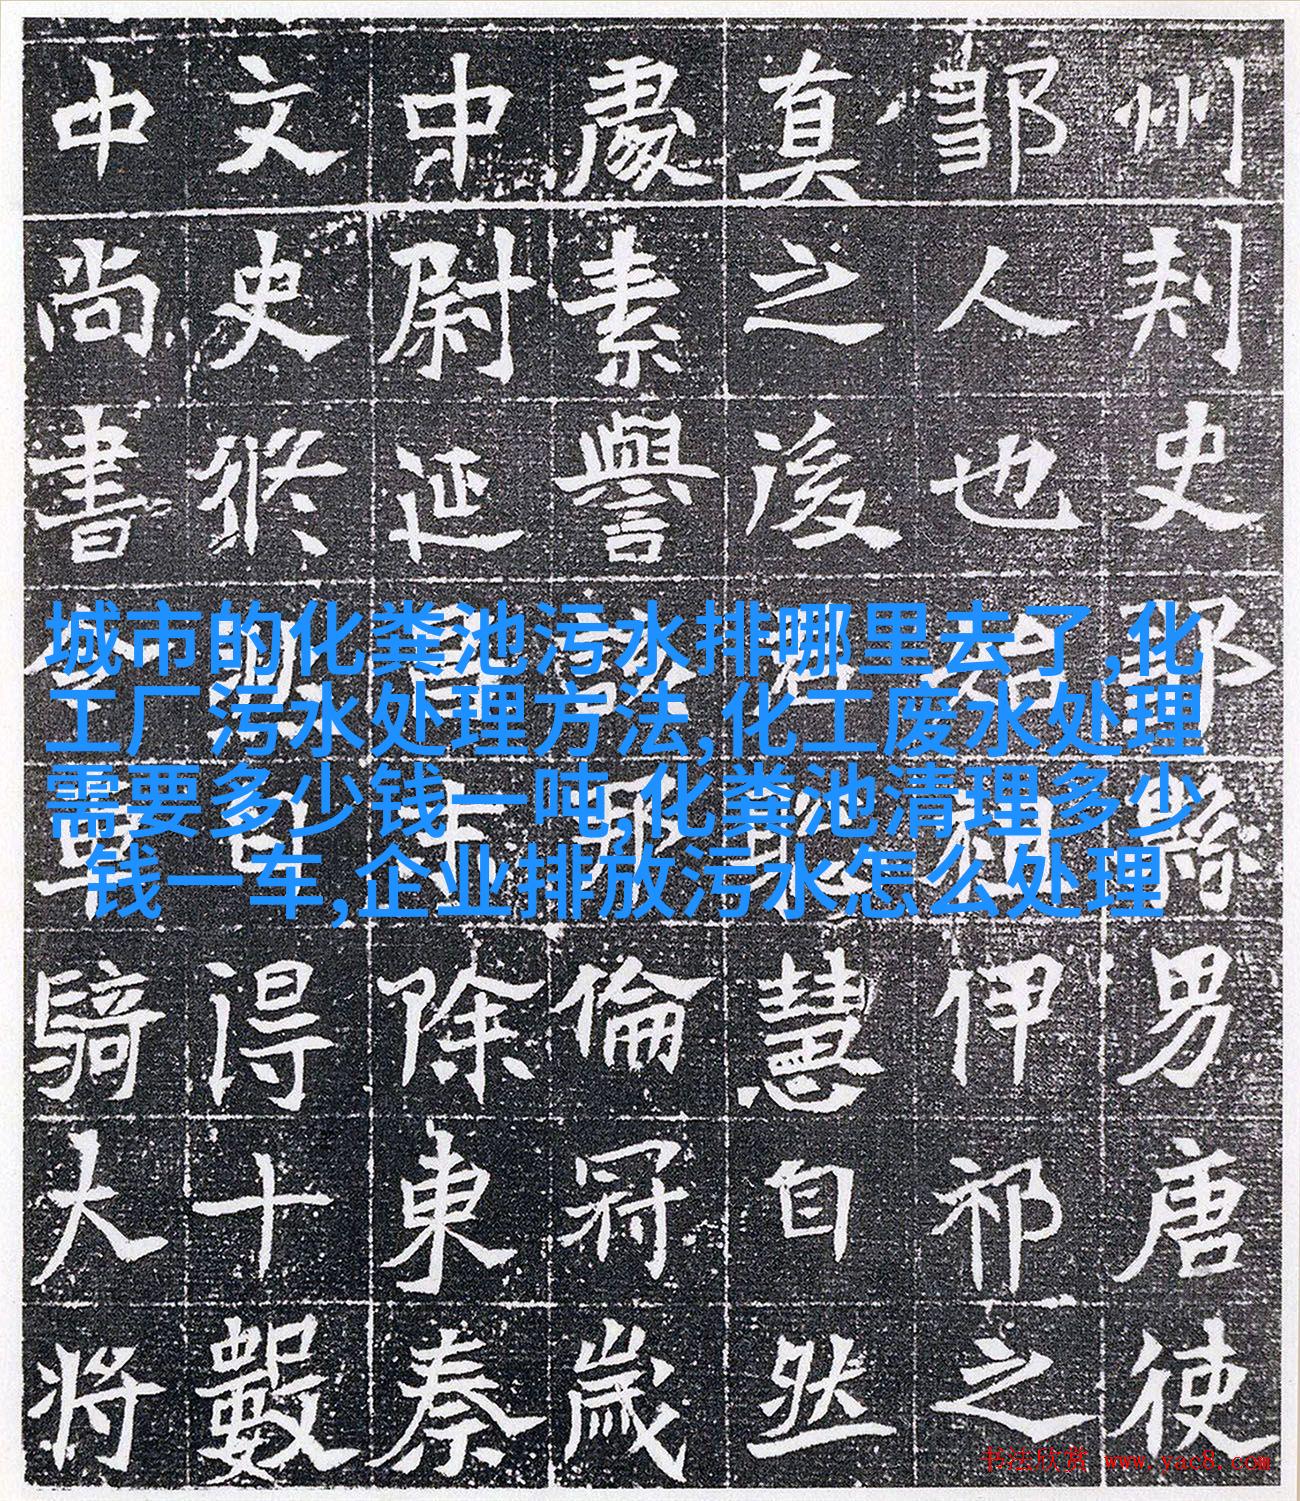 州刾史縣男唐使
鄒人也伊祁之
真之後慧自然
處素譽倫冠歲
中尉延除東秦
文史修得十數
中尚書騎大将
城市的化粪池污水排哪里去了,化
工厂污水处理方法,化工废水处理
需要多少钱一吨,化粪池清理多少
钱一车,企业排放污水怎么处理
书法欣赏 www.yac8.com